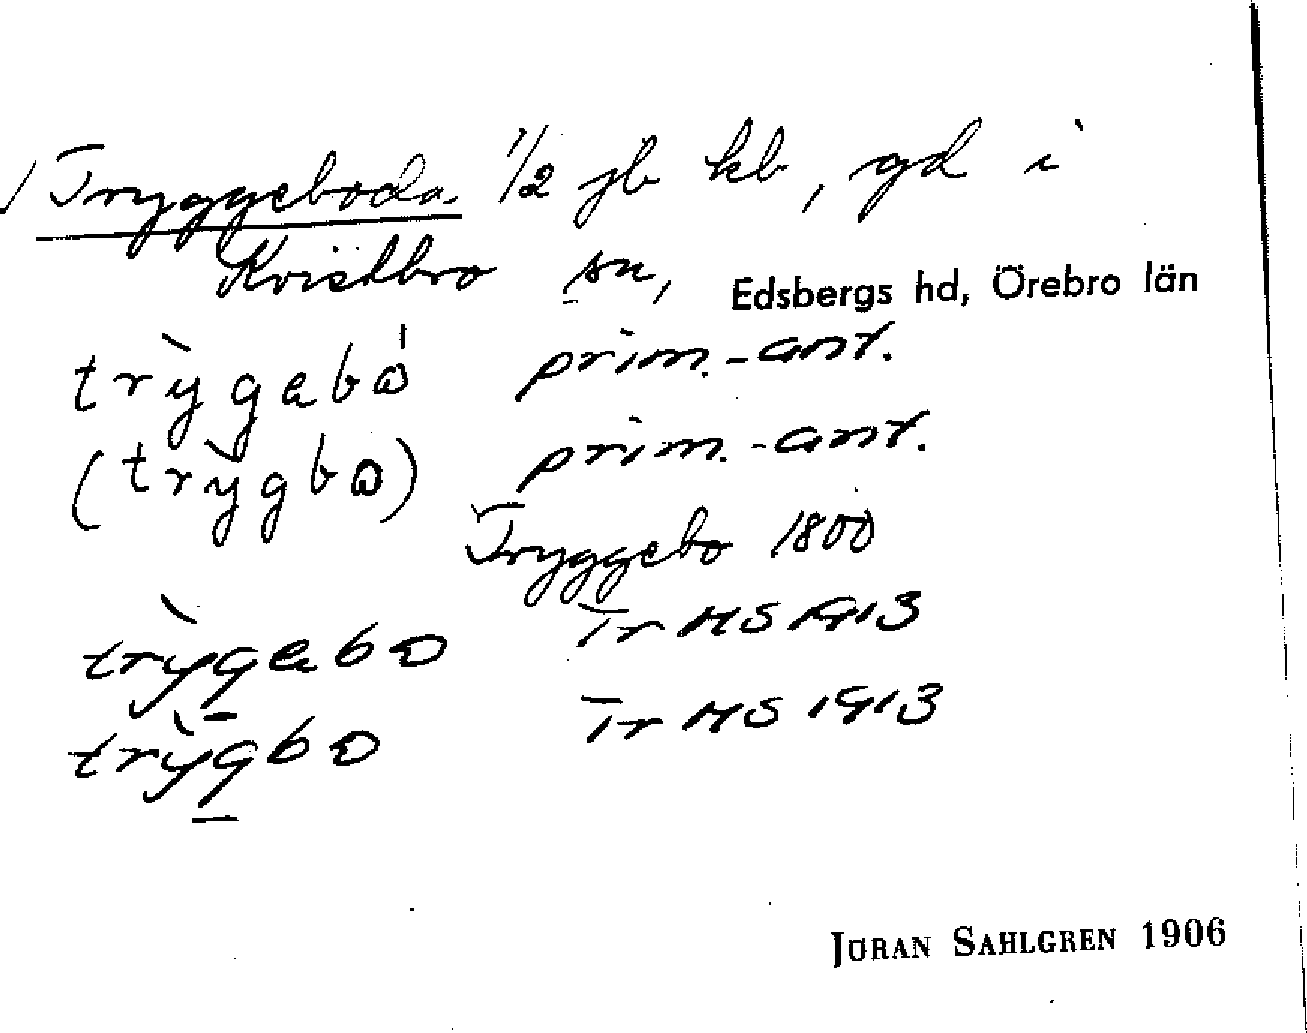 Tryggeboda 1/2 jb kb, gd i
Kvistbro sn, Edsbergs hd, Örebro län
trỳgabò prim.-ant.
(trỳgbɷ) prim.-ant.
Tryggebo 1800
trỳgabo Tr MS 1913
trỳgbo Tr MS 1913
JÖRAN SAHLGREN 1906